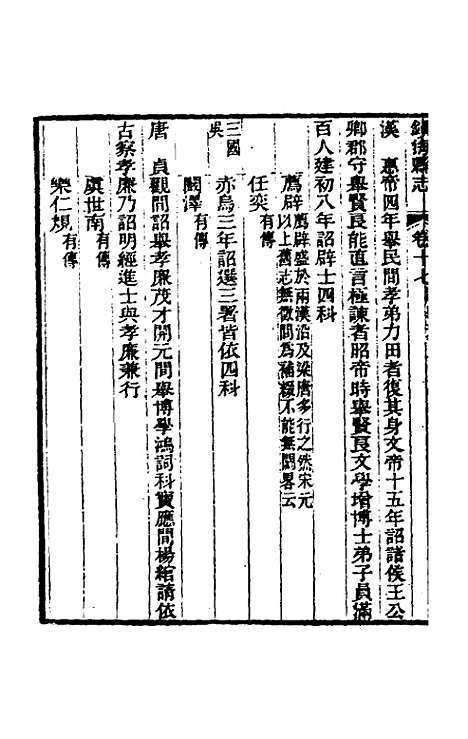 鎮海縣志 卷十七
漢 惠帝四年舉民間孝弟力田者復其身文帝十五年詔諸侯王公
卿郡守舉賢良能直言極諫者昭帝時舉賢良文學增博士弟子員滿
百人建初八年詔辟士四科
薦辟 薦辟盛於兩漢沿及梁唐多行之然宋元
以上舊志無徵間為補綴不能無闕畧云
任奕 有傳
三國
吳 赤烏三年詔選三署皆依四科
闞澤 有傳
唐 貞觀間詔舉孝廉茂才開元間舉博學鴻詞科寶應間楊綰請依
古察孝廉乃詔明經進士與孝廉兼行
虞世南 有傳
樂仁規 有傳